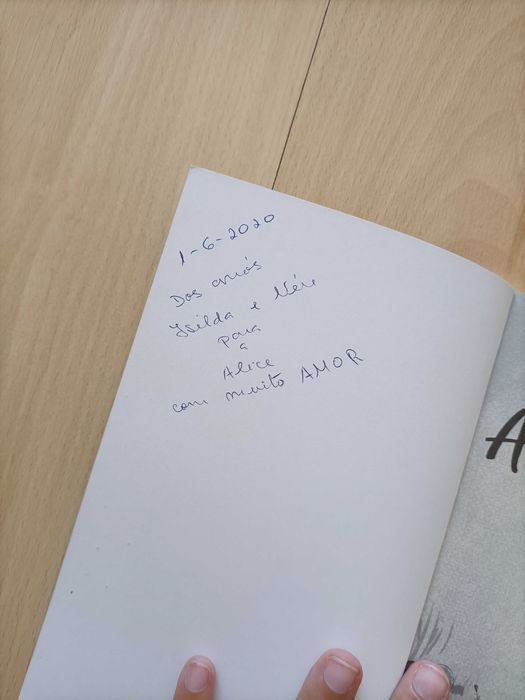 1-6-2020
Dos avós
Isilda e
para
a
Alice
com muito AMOR
A